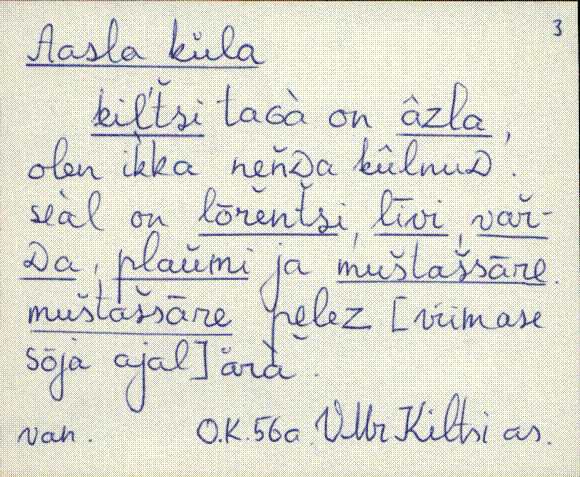 3
Aasla küla
kil̆'t̆si tacà on âzla,
olen ìkka neňDa kûlnuD.
seàl on lōrĕnt̆si, līvi, vař-
Da, plaŭmi ja muštaššāre.
muštaššāre pèlez [viimase
sōja ajal] ärà.
van. O.K. 56a. VMr Kiltsi as.